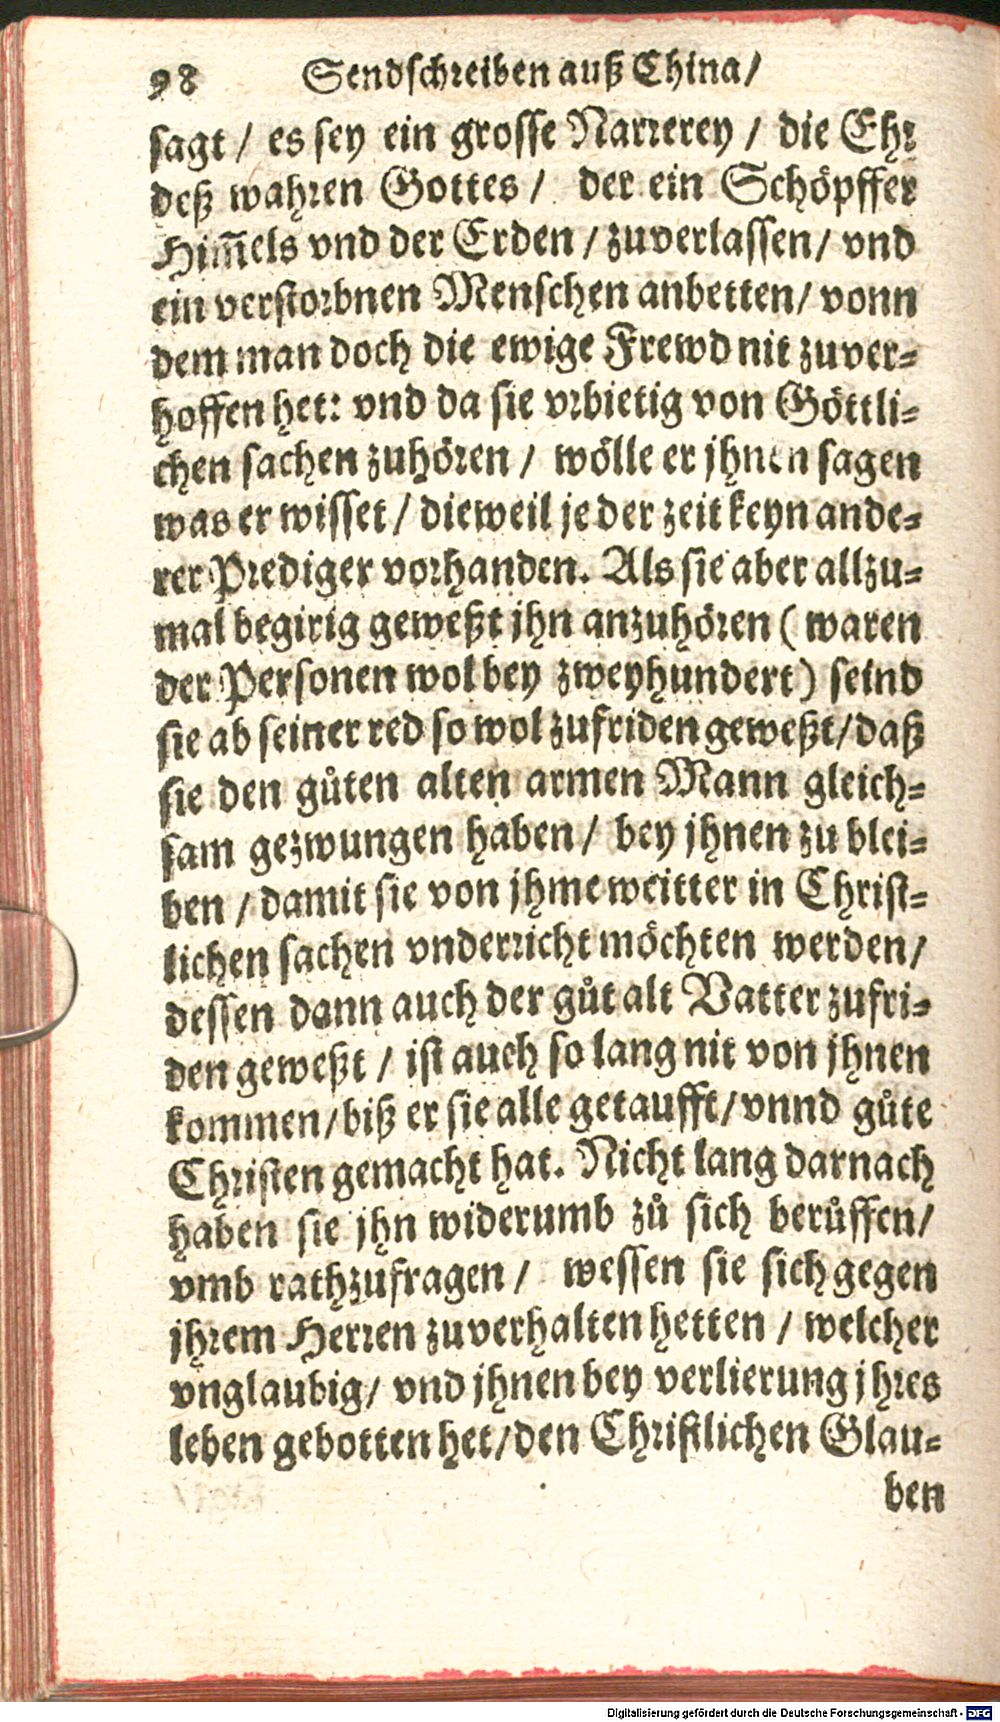 98 Sendschreiben auß China/
sagt / es sey ein grosse Narrerey / die Ehr
deß wahren Gottes / der ein Schöpffer
Him̅els vnd der Erden / zuverlassen / vnd
ein verstorbnen Menschen anbetten / vonn
dem man doch die ewige Frewd nit zuver-
hoffen het: vnd da sie vrbietig von Göttli-
chen sachen zuhören / wölle er jhnen sagen
was er wisset / dieweil jeder zeit keyn ande-
rer Prediger vorhanden. Als sie aber allzu-
mal begirig geweßt jhn anzuhören ( waren
der Personen wol bey zweyhundert) seind
sie ab seiner red so wol zufriden geweßt / daß
sie den gůten alten armen Mann gleich-
sam gezwungen haben / bey jhnen zu blei-
ben / damit sie von jhme weitter in Christ-
lichen sachen vnderricht möchten werden /
dessen dann auch der gůt alt Vatter zufri-
den geweßt / ist auch so lang nit von jhnen
kommen / biß er sie alle getaufft / vnnd gůte
Christen gemacht hat. Nicht lang darnach
haben sie jhn widerumb zů sich berůffen /
vmb rath zufragen / wessen sie sich gegen
jhrem Herren zuverhalten hetten / welcher
vnglaubig / vnd jhnen bey verlierung jhres
leben gebotten het / den Christlichen Glau-
ben
Digitalisierung gefördert durch die Deutsche Forschungsgemeinschaft - DFG